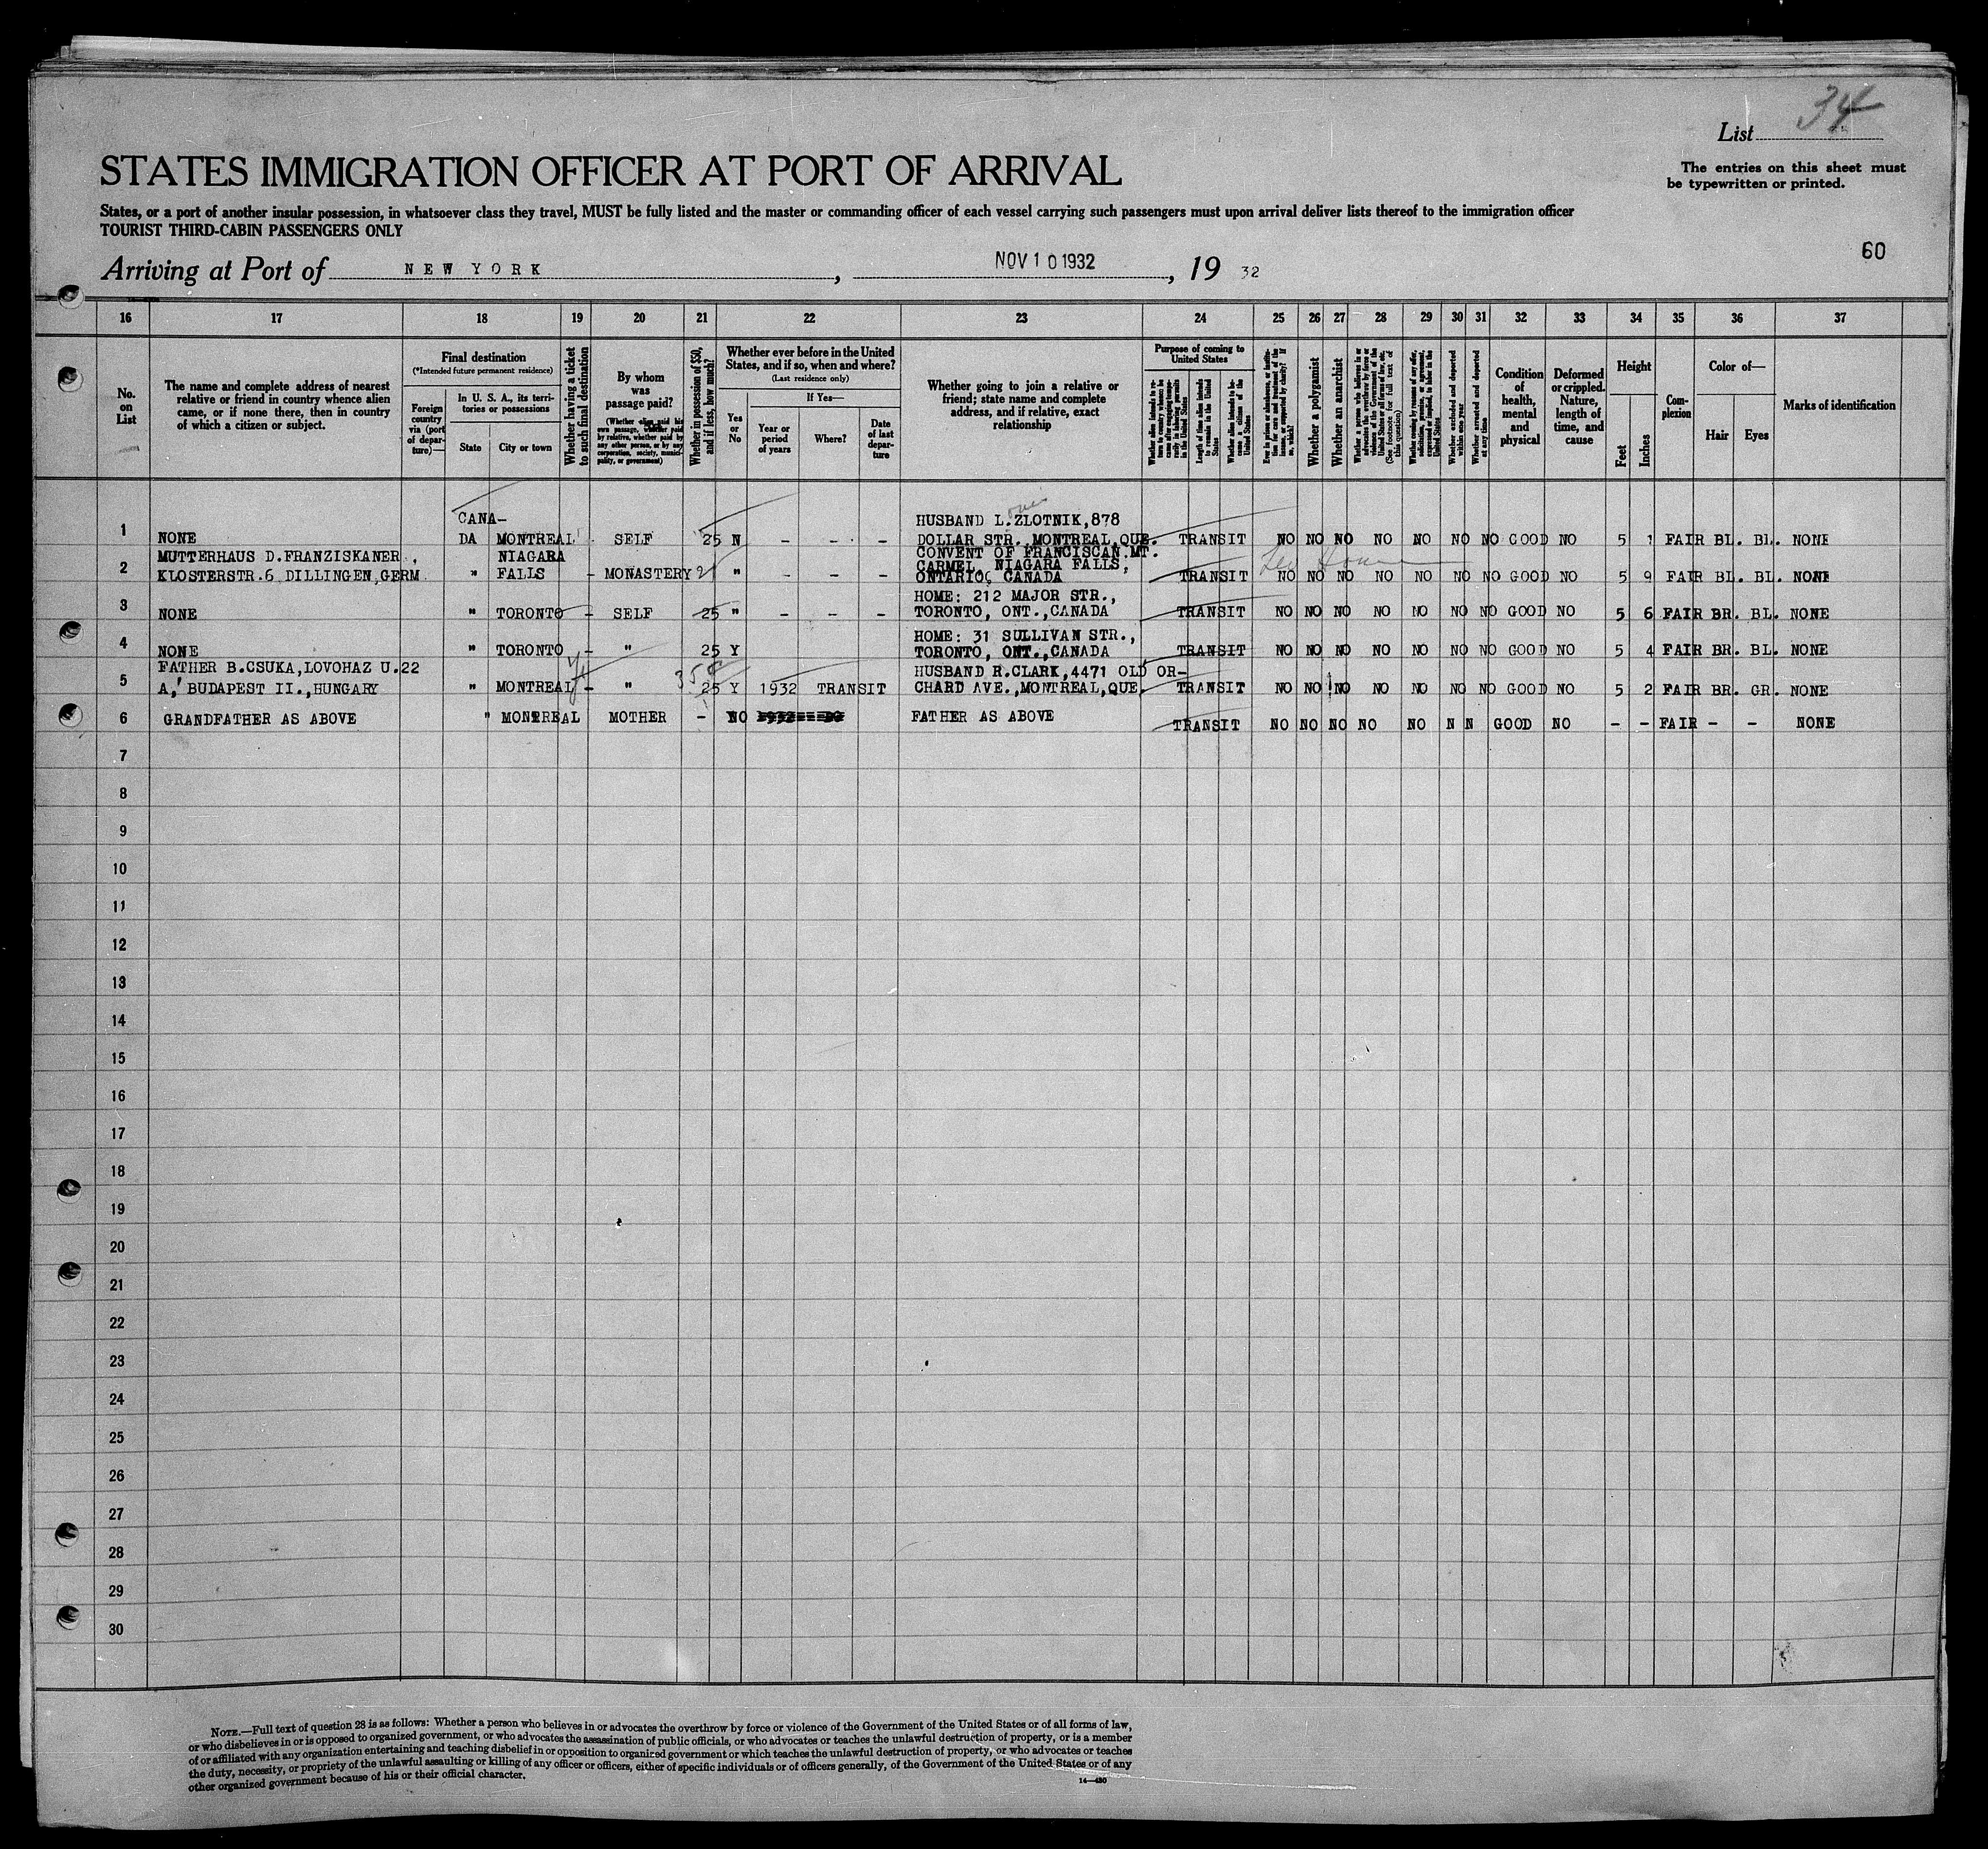 34
List
STATES IMMIGRATION OFFICER AT PORT OF ARRIVAL
The entries on this sheet must
be typewritten or printed.
States, or a port of another insular possession, in whatsoever class they travel, MUST be fully listed and the master or commanding officer of each vessel carrying such passengers must upon arrival deliver lists thereof to the immigration officer
TOURIST THIRD-CABIN PASSENGERS ONLY
60
Arriving at Port of NEW YORK, NOV 10 1932, 19 32
16 17 18 19 20 21 22 23 24 25 26 27 28 29 30 31 32 33 34 35 36 37
No. on List
The name and complete address of nearest
relative or friend in country whence alien
came, or if none there, then in country
of which a citizen or subject.
Final destination
(*Intended future permanent residence)
Foreign country via (port of departure)—
In U. S. A., its territories or possessions
State
City or town
Whether having a ticket to such final destination
By whom was passage paid?
(Whether alien paid his own passage, whether paid by relative, whether paid by any other person, or by any corporation, society, municipality, or government)
Whether in possession of $50, and if less, how much?
Whether ever before in the United
States, and if so, when and where?
(Last residence only)
Yes or No
If Yes—
Year or period of years
Where?
Date of last departure
Whether going to join a relative or
friend; state name and complete
address, and if relative, exact
relationship
Purpose of coming to United States
Length of time alien intends to remain in the United States
Whether alien intends to become a citizen of the United States
Whether a polygamist
Whether an anarchist
(See footnote for full text of this question)
Whether excluded and deported within one year
Whether arrested and deported at any time
Condition of health, mental and physical
Deformed or crippled. Nature, length of time, and cause
Height
Feet
Inches
Complexion
Color of—
Hair
Eyes
Marks of identification
1 NONE CANA-DA MONTREAL SELF 25 N - - - HUSBAND L. ZLOTNIK, 878
DOLLAR STR., MONTREAL, QUE. TRANSIT NO NO NO NO NO NO NO GOOD NO 5 1 FAIR BL. BL. NONE
2 MUTTERHAUS D. FRANZISKANER,
KLOSTERSTR. 6 DILLINGEN, GERM. " NIAGARA FALLS - MONASTERY " - - - CONVENT OF FRANCISCAN MT.
CARMEL, NIAGARA FALLS,
ONTARIO, CANADA TRANSIT NO NO NO NO NO NO NO GOOD NO 5 9 FAIR BL. BL. NONE
3 NONE " TORONTO - SELF 25 " - - - HOME: 212 MAJOR STR.,
TORONTO, ONT., CANADA TRANSIT NO NO NO NO NO NO NO GOOD NO 5 6 FAIR BR. BL. NONE
4 NONE " TORONTO - " 25 Y HOME: 31 SULLIVAN STR.,
TORONTO, ONT., CANADA TRANSIT NO NO NO NO NO NO NO GOOD NO 5 4 FAIR BR. BL. NONE
5 FATHER B. CSUKA, LOVOHAZ U. 22
A, BUDAPEST II., HUNGARY " MONTREAL - " 25 Y 1932 TRANSIT HUSBAND R. CLARK, 4471 OLD OR-
CHARD AVE., MONTREAL, QUE. TRANSIT NO NO NO NO NO NO NO GOOD NO 5 2 FAIR BR. GR. NONE
6 GRANDFATHER AS ABOVE " MONTREAL MOTHER - NO FATHER AS ABOVE TRANSIT NO NO NO NO NO N N GOOD NO - - FAIR - - NONE
7
8
9
10
11
12
13
14
15
16
17
18
19
20
21
22
23
24
25
26
27
28
29
30
NOTE.—Full text of question 28 is as follows: Whether a person who believes in or advocates the overthrow by force or violence of the Government of the United States or of all forms of law,
or who disbelieves in or is opposed to organized government, or who advocates the assassination of public officials, or who advocates or teaches the unlawful destruction of property, or is a member
of or affiliated with any organization entertaining and teaching disbelief in or opposition to organized government or which teaches the unlawful destruction of property, or who advocates or teaches
the duty, necessity, or propriety of the unlawful assaulting or killing of any officer or officers, either of specific individuals or of officers generally, of the Government of the United States or of any
other organized government because of his or their official character.
14—430